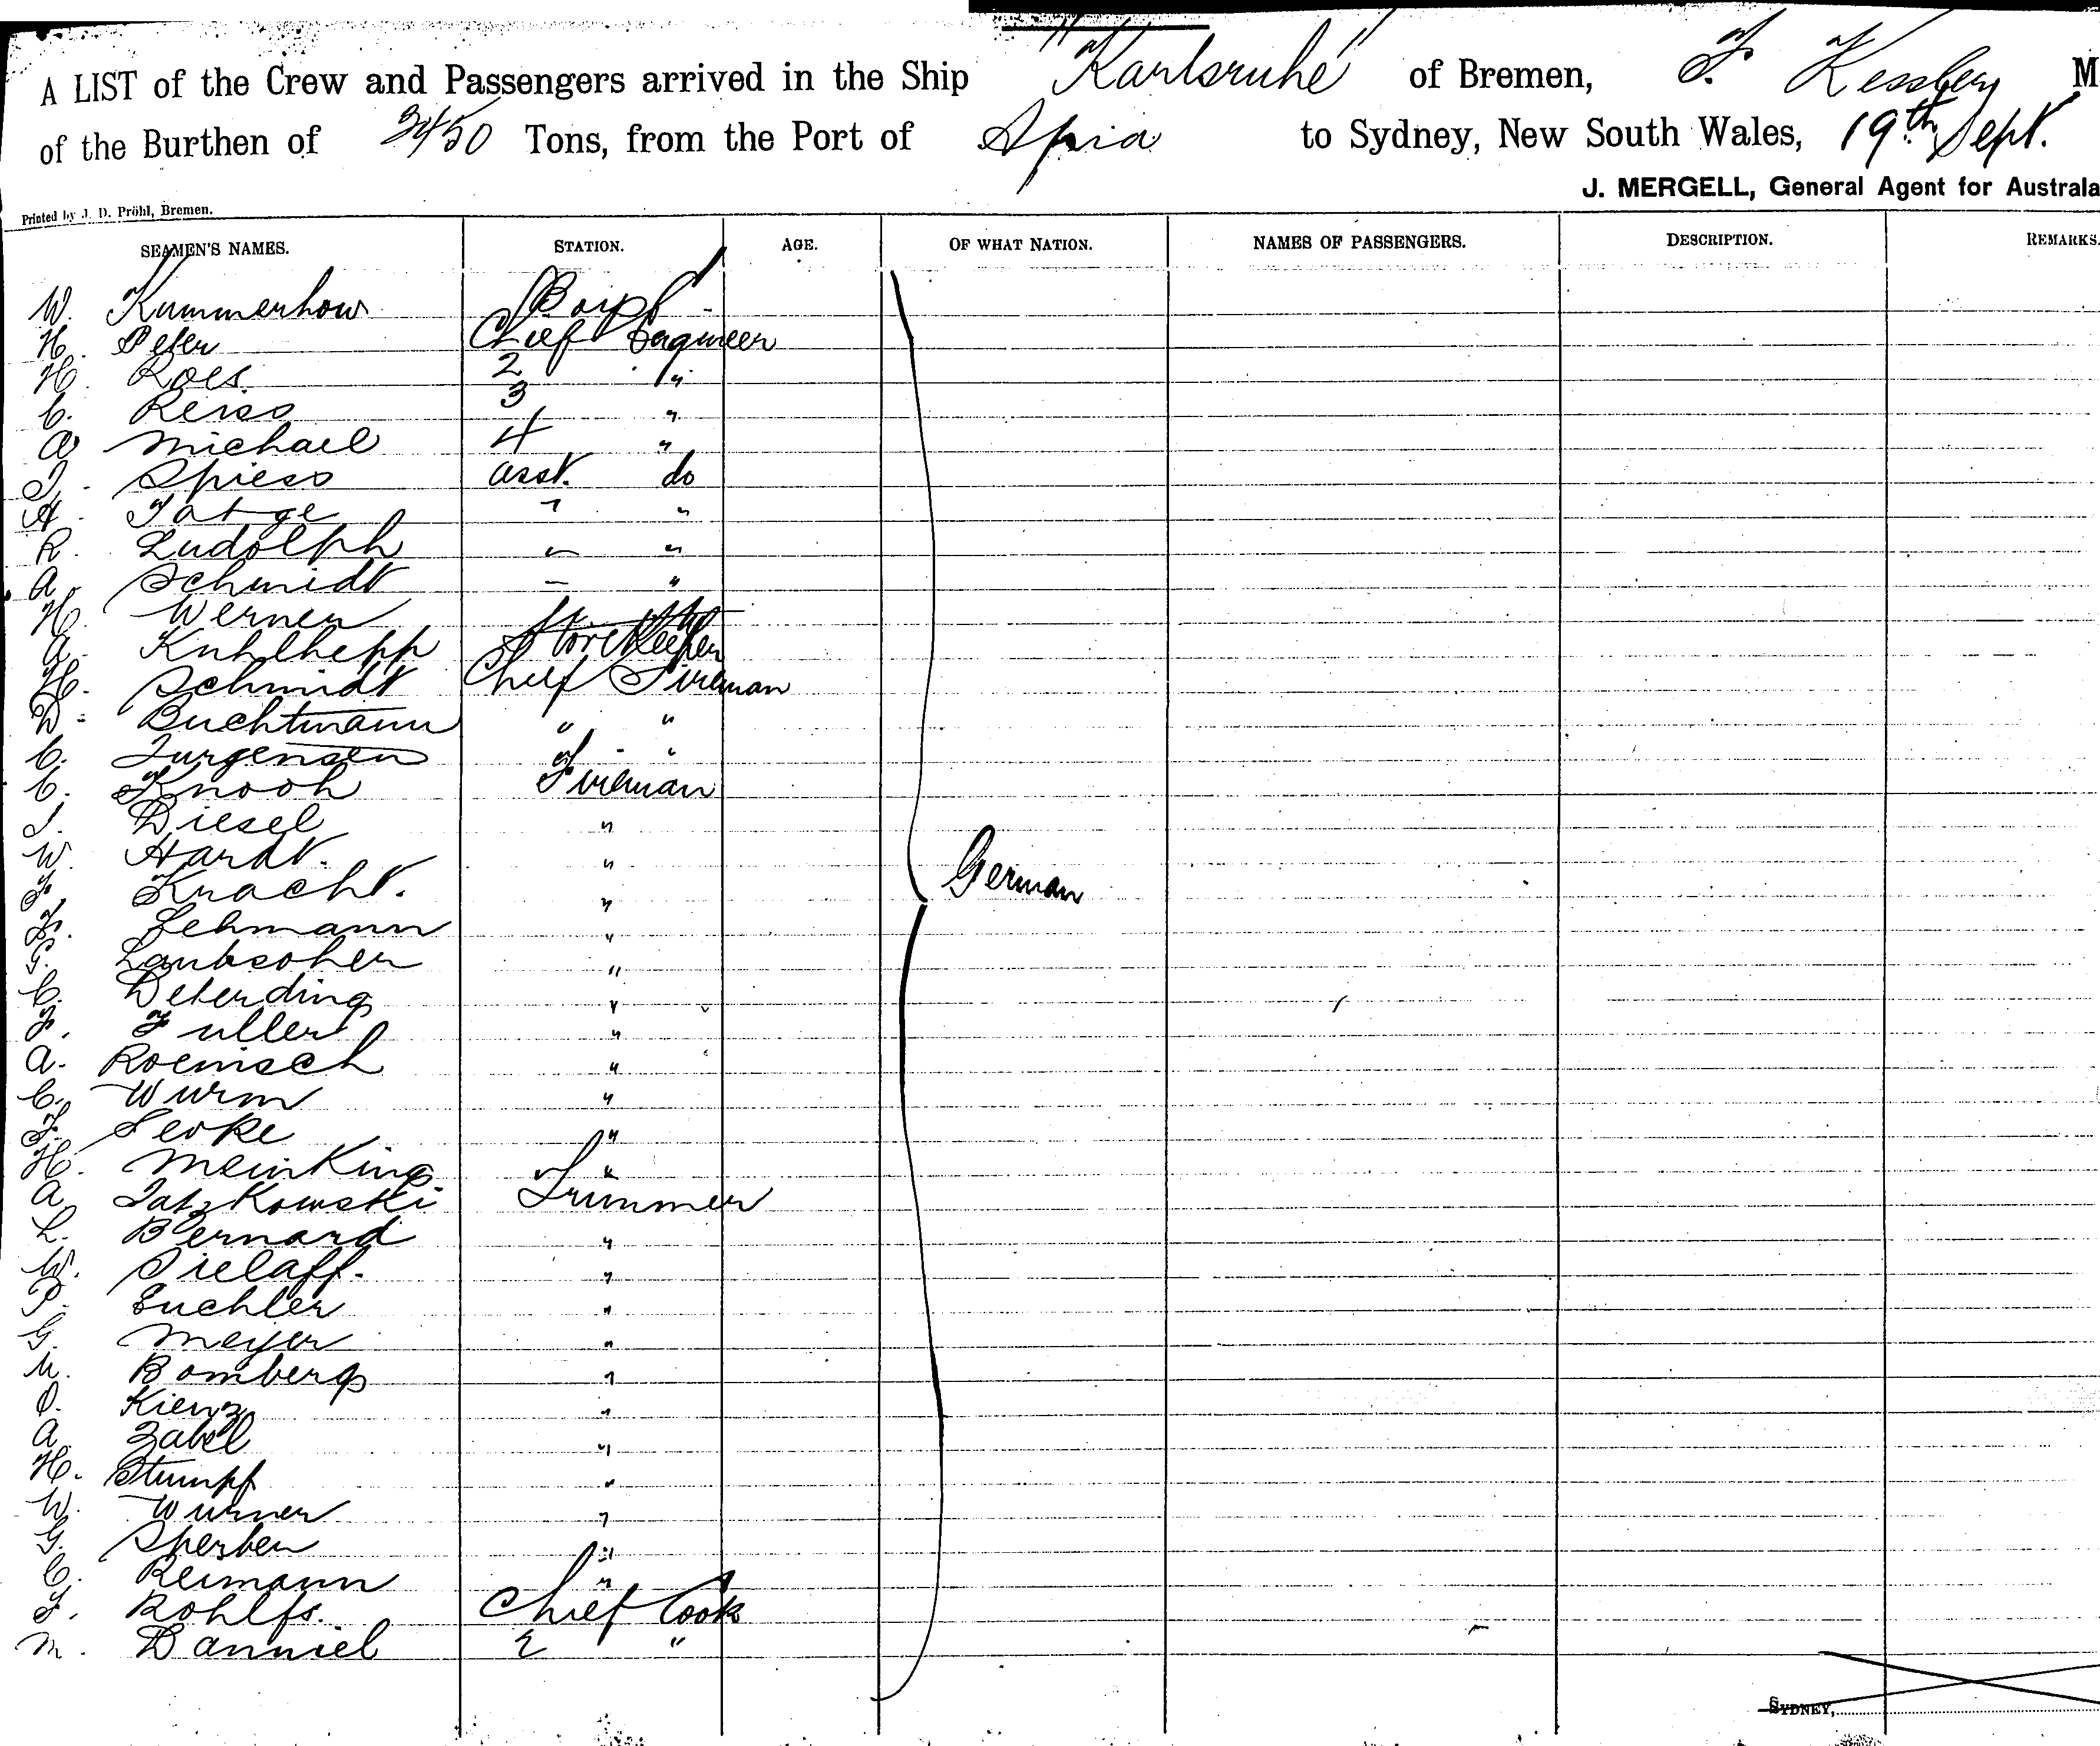 A LIST of the Crew and Passengers arrived in the Ship "Karlsruhe" of Bremen, F. Kessberg M
of the Burthen of 3450 Tons, from the Port of Apia to Sydney, New South Wales, 19th Sept.
J. MERGELL, General Agent for Australa
Printed by J. D. Pröhl, Bremen.
SEAMEN'S NAMES. STATION. AGE. OF WHAT NATION. NAMES OF PASSENGERS. DESCRIPTION. REMARKS.
W. Kummerhow
H. Peter Chief Engineer
H. Roes. 2 "
C. Reiss 3 "
A Michael 4 "
J. Spiess asst. do
A. Tatge " "
R. Ludolph " "
A. Schmidt " "
H. Werner
A. Kuhlhepp Storekeeper
H. Schmidt Chief Fireman
D. Buchtmann " "
C. Jurgensen " "
C. Knooh Fireman
J. Diesel "
W. Hardt. "
F. Kracht. " German
F. Lehmann "
G. Laubsoher "
C. Deterding "
F. Fuller "
A. Roemisch "
C. Wurm "
F. Serke "
H. Meinking "
A. Tatzkowski Trimmer
L. Bernard "
W. Pielaff. "
P. Euchler "
G. Meyer "
M. Bomberg "
O. Kienz "
A. Zabel "
H. Stumpf "
W. Wurner "
G. Sperber "
C. Reimann "
F. Rohlfs. Chief Cook
M. Danniel 2 "
SYDNEY,